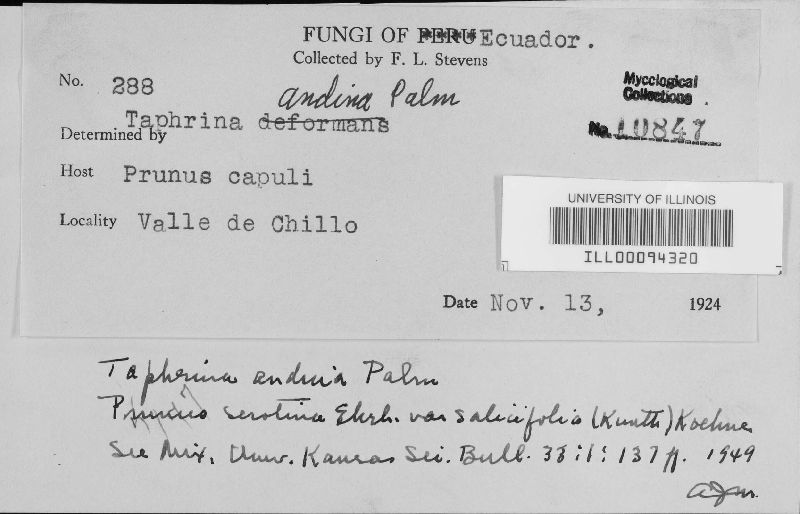 FUNGI OF PERU Ecuador.
Collected by F. L. Stevens
No. 288
andina Palm
Mycological
Collections
No. 10847
Taphrina deformans
Determined by
Host Prunus capuli
Locality Valle de Chillo
UNIVERSITY OF ILLINOIS
ILL00094320
Date Nov. 13, 1924
Tapherina andina Palm
Prunus serotina Ehrh. var salicifolia (Kunth) Koehne
See Mix, Univ. Kansas Sci. Bull. 33:1: 137 ff. 1949